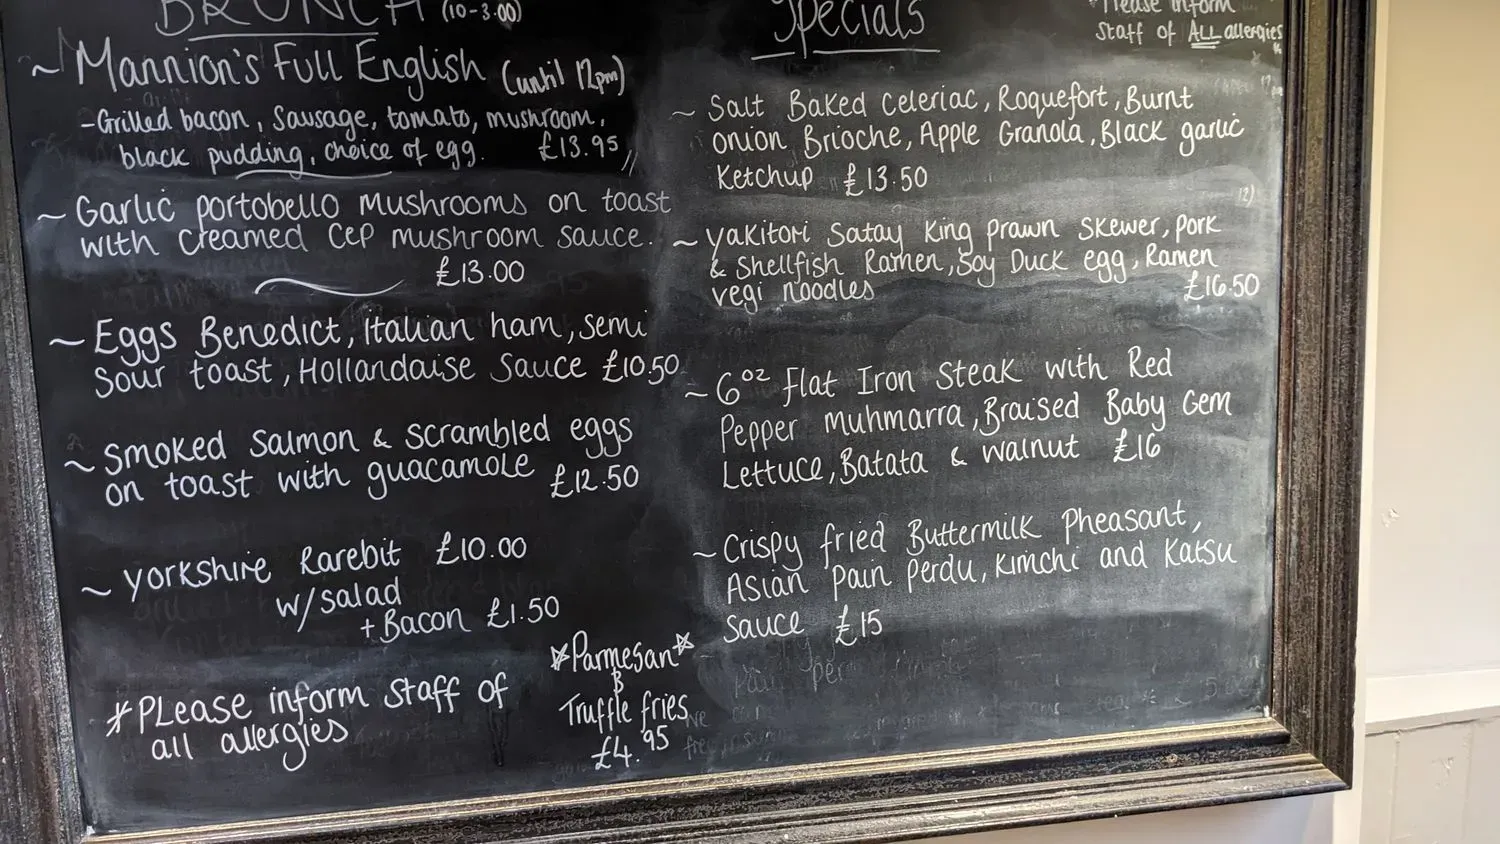 BRUNCH (10-3.00)
~ Mannion's Full English (until 12pm)
- Grilled bacon, Sausage, tomato, mushroom,
black pudding, choice of egg. £13.95
~ Garlic portobello mushrooms on toast
with creamed cep mushroom sauce.
£13.00
~ Eggs Benedict, Italian ham, semi
sour toast, Hollandaise sauce £10.50
~ Smoked Salmon & scrambled eggs
on toast with guacamole £12.50
~ Yorkshire Rarebit £10.00
w/salad
+ Bacon £1.50
* Please inform staff of
all allergies
*Parmesan*
&
Truffle fries
£4.95
Specials
* Please inform
Staff of ALL allergies
~ Salt Baked Celeriac, Roquefort, Burnt
onion Brioche, Apple Granola, Black garlic
Ketchup £13.50
~ Yakitori Satay King prawn Skewer, pork
& Shellfish Ramen, Soy Duck egg, Ramen
vegi noodles £16.50
~ 6oz Flat Iron Steak with Red
Pepper muhmarra, Braised Baby Gem
Lettuce, Batata & walnut £16
~ Crispy fried Buttermilk Pheasant,
Asian pain perdu, kimchi and Katsu
Sauce £15